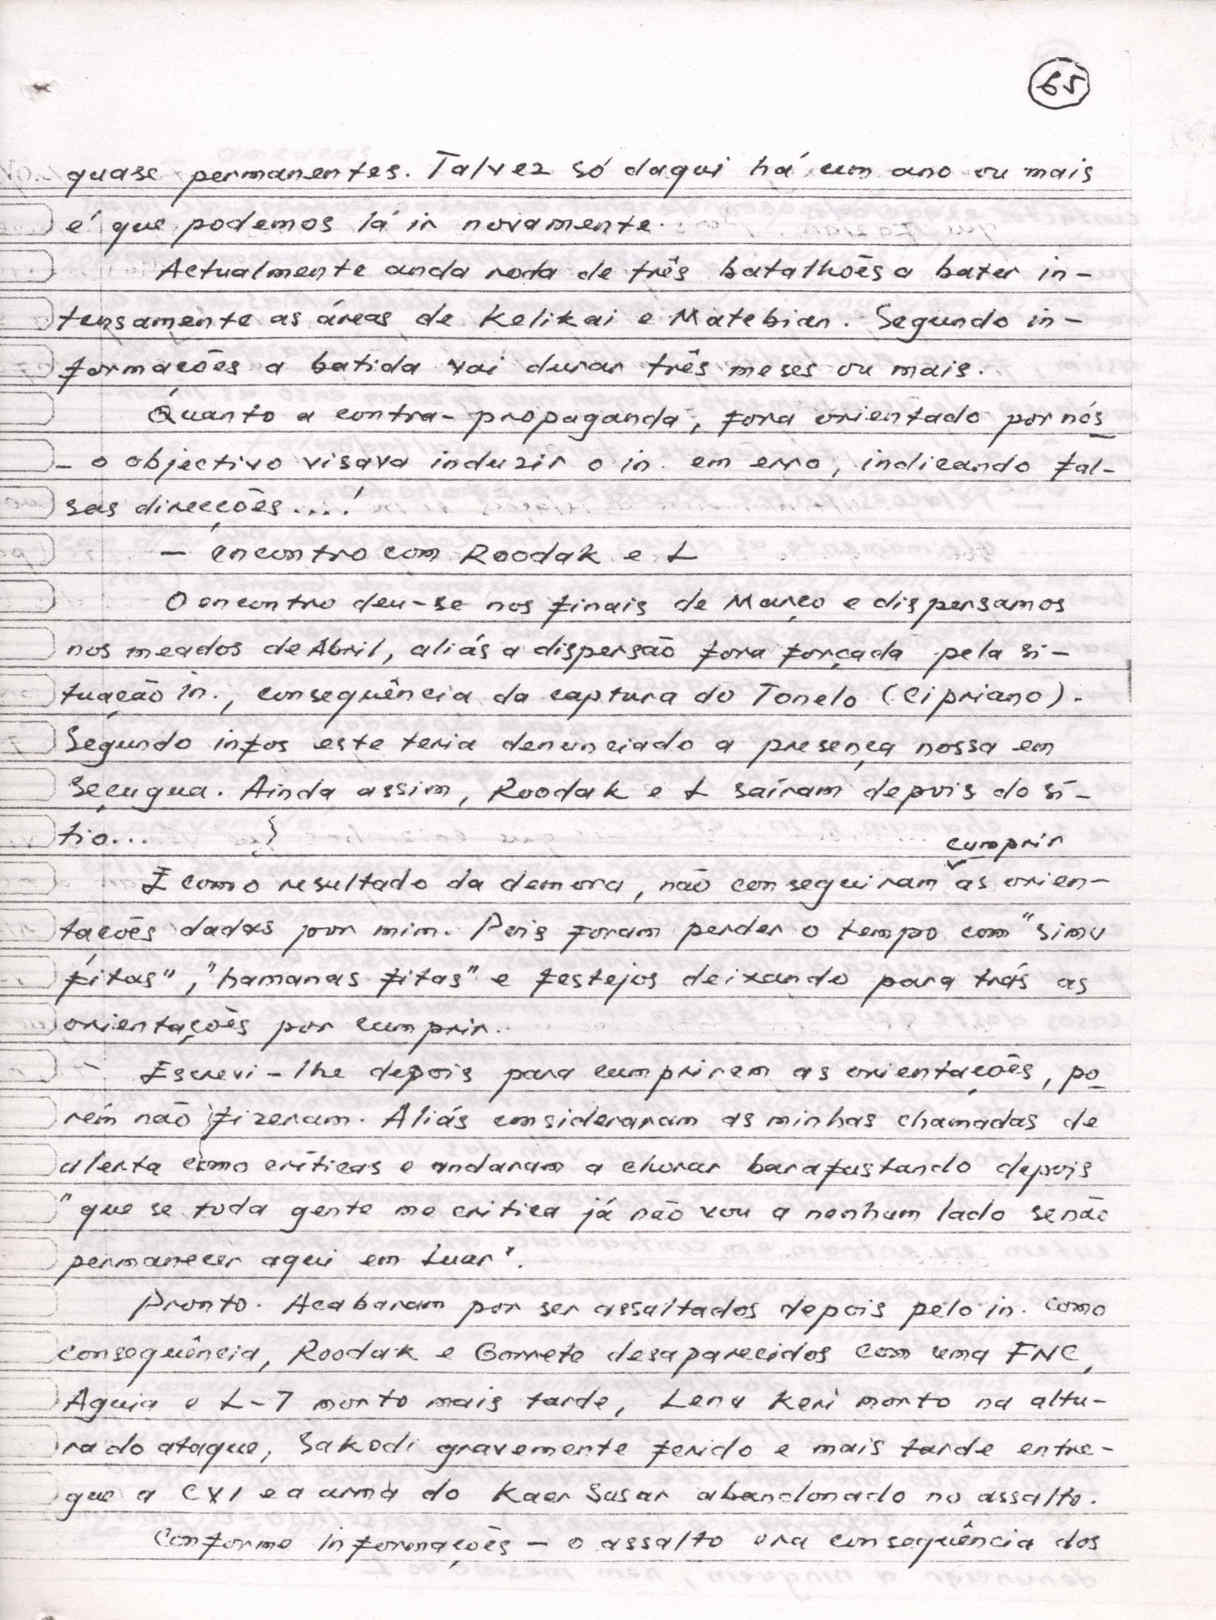 65
quase permanentes. Talvez só daqui há um ano ou mais
é que podemos lá ir novamente.
Actualmente anda roda de três batalhões a bater in-
tensamente as áreas de Kelikai e Matebian. Segundo in-
formações a batida vai durar três meses ou mais.
Quanto a contra-propaganda, fora orientado por nós
- o objectivo visava induzir o in. em erro, indicando fal-
sas direcções...!
- encontro com Roodak e L
O encontro deu-se nos finais de Março e dispersamos
nos meados de Abril, aliás a dispersão fora forçada pela si-
tuação in., consequência da captura do Tonelo (Cipriano).
Segundo infos este teria denunciado a presença nossa em
Seçugua. Ainda assim, Roodak e L saíram depois do sí-
tio...
cumprir
E como resultado da demora, não conseguiram as orien-
tações dadas por mim. Pois foram perder o tempo com "simu
fitas", "hamanas fitas" e festejos deixando para trás as
orientações por cumprir.
Escrevi-lhe depois para cumprirem as orientações, po
rém não fizeram. Aliás consideraram as minhas chamadas de
alerta como críticas e andaram a chorar barafustando depois
"que se toda gente me critica já não vou a nenhum lado senão
permanecer aqui em Luar".
Pronto. Acabaram por ser assaltados depois pelo in. como
consequência, Roodak e Gorreto desaparecidos com uma FNC,
Aguia e L-7 morto mais tarde, Lenu Keri morto na altu-
ra do ataque, Sakodi gravemente ferido e mais tarde entre-
gue a CVI e a arma do Kaer Susar abandonado no assalto.
Conforme informações - o assalto era consequência dos